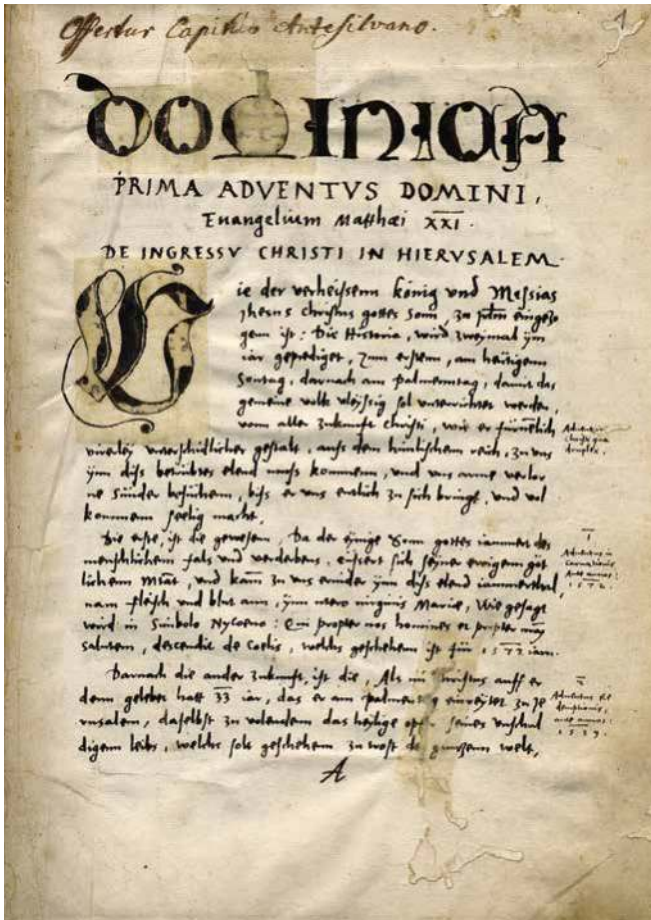 Offertur Capitulo Antesilvano.
1
DOMINICA
PRIMA ADVENTVS DOMINI,
Euangelium Matthæi XXI.
DE INGRESSV CHRISTI IN HIERVSALEM.
Wie der verheissenn könig vnd Messias
Jhesus Christus gottes Sonn, zu eingezo
genn ist: Die Historia, wird zweymal ym
iar geprediget, Zum erstenn, am heutigenn
Sontag, darnach am palmenntag, damit das
gemeine volk vleyssig sol vnterrichtet werden,
vonn aller Zukunfft Christi, wie er fürnemlich
vnterschidlicher gestalt, auss dem himlischem reich, zu vns
ynn diss betrübtes elend kommenn, vnd vns arme verlor
ne Sünder besuchenn, biss er vns entlich zu sich bringt, vnd vol
kommenn seelig macht.
Die erste, ist die gewesenn, Da der eynige Sonn gottes iammert des
menschlichenn fals vnd verderbens, eussert sich seyner ewigenn göt
lichenn Mtat, vnd kam zu vns ernider ynn diss elend iammerthal,
nam fleisch vnd blut ann, ynn utero virginis Marie, Wie gesagt
wird in Simbolo Nyceno: Qui propter nos homines et propter nram
salutem, descendit de Coelis, welchs geschehenn ist für 1572 iarn.
Darnach die ander Zukunfft, ist die, Als nu Christus auff er
denn gelebet hatt 33 iar, das er am palmentag einreytet zu Je
rusalem, daselbst zu volendenn das heylige opfer seines vnschul
digenn leibs, welchs sols geschehenn zu trost der gantzenn welt,
A
Aduentus
Christi qua
druplex.
1
Aduentus in
Carnem
ante annos:
1572.
2
Aduentus
ante annos:
1539.